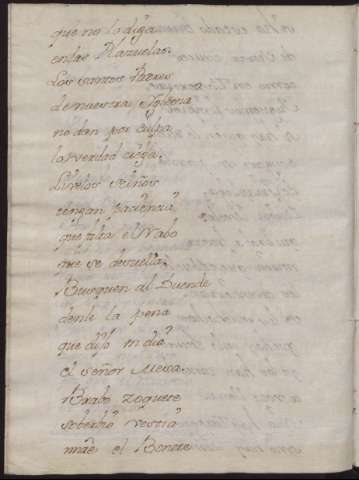 que no lo diga
en las Plazuelas.
Los santos Padres
de nuestra Yglesia
no dan por culpa
la verdad ciega.
Luselos señores
tengan paciencia
que falta el Nabo
que se desuella.
Busquen al Duende
denle la pena
que dijo un dia
el señor Mesa.
Brabo zoquete
soberbia vestia
mnde el Bonete